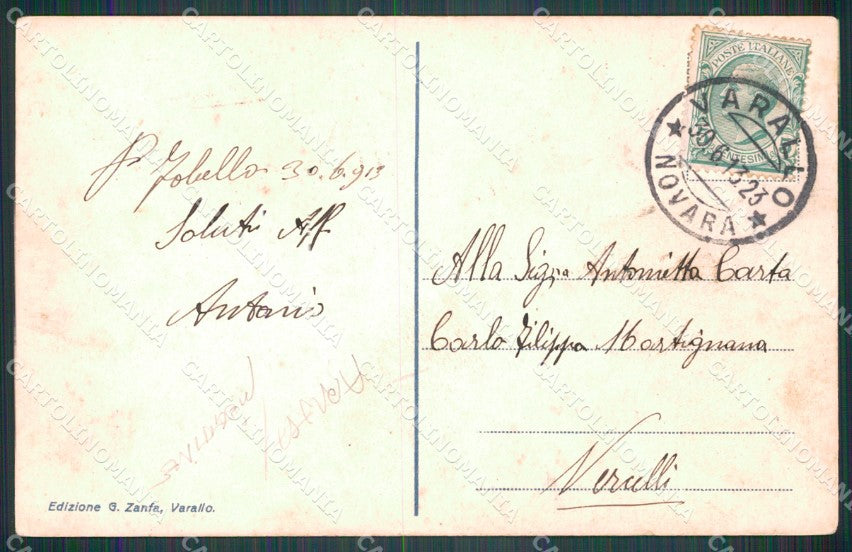 30.6.913
Saluti Aff
Antonio
Edizione G. Zanfa, Varallo.
POSTE ITALIANE
VARALLO
30.6.13.23
NOVARA
Alla Sigra Antonietta Carta
Carlo Filippo Martignana
Vercelli
CARTOLINOMANIA